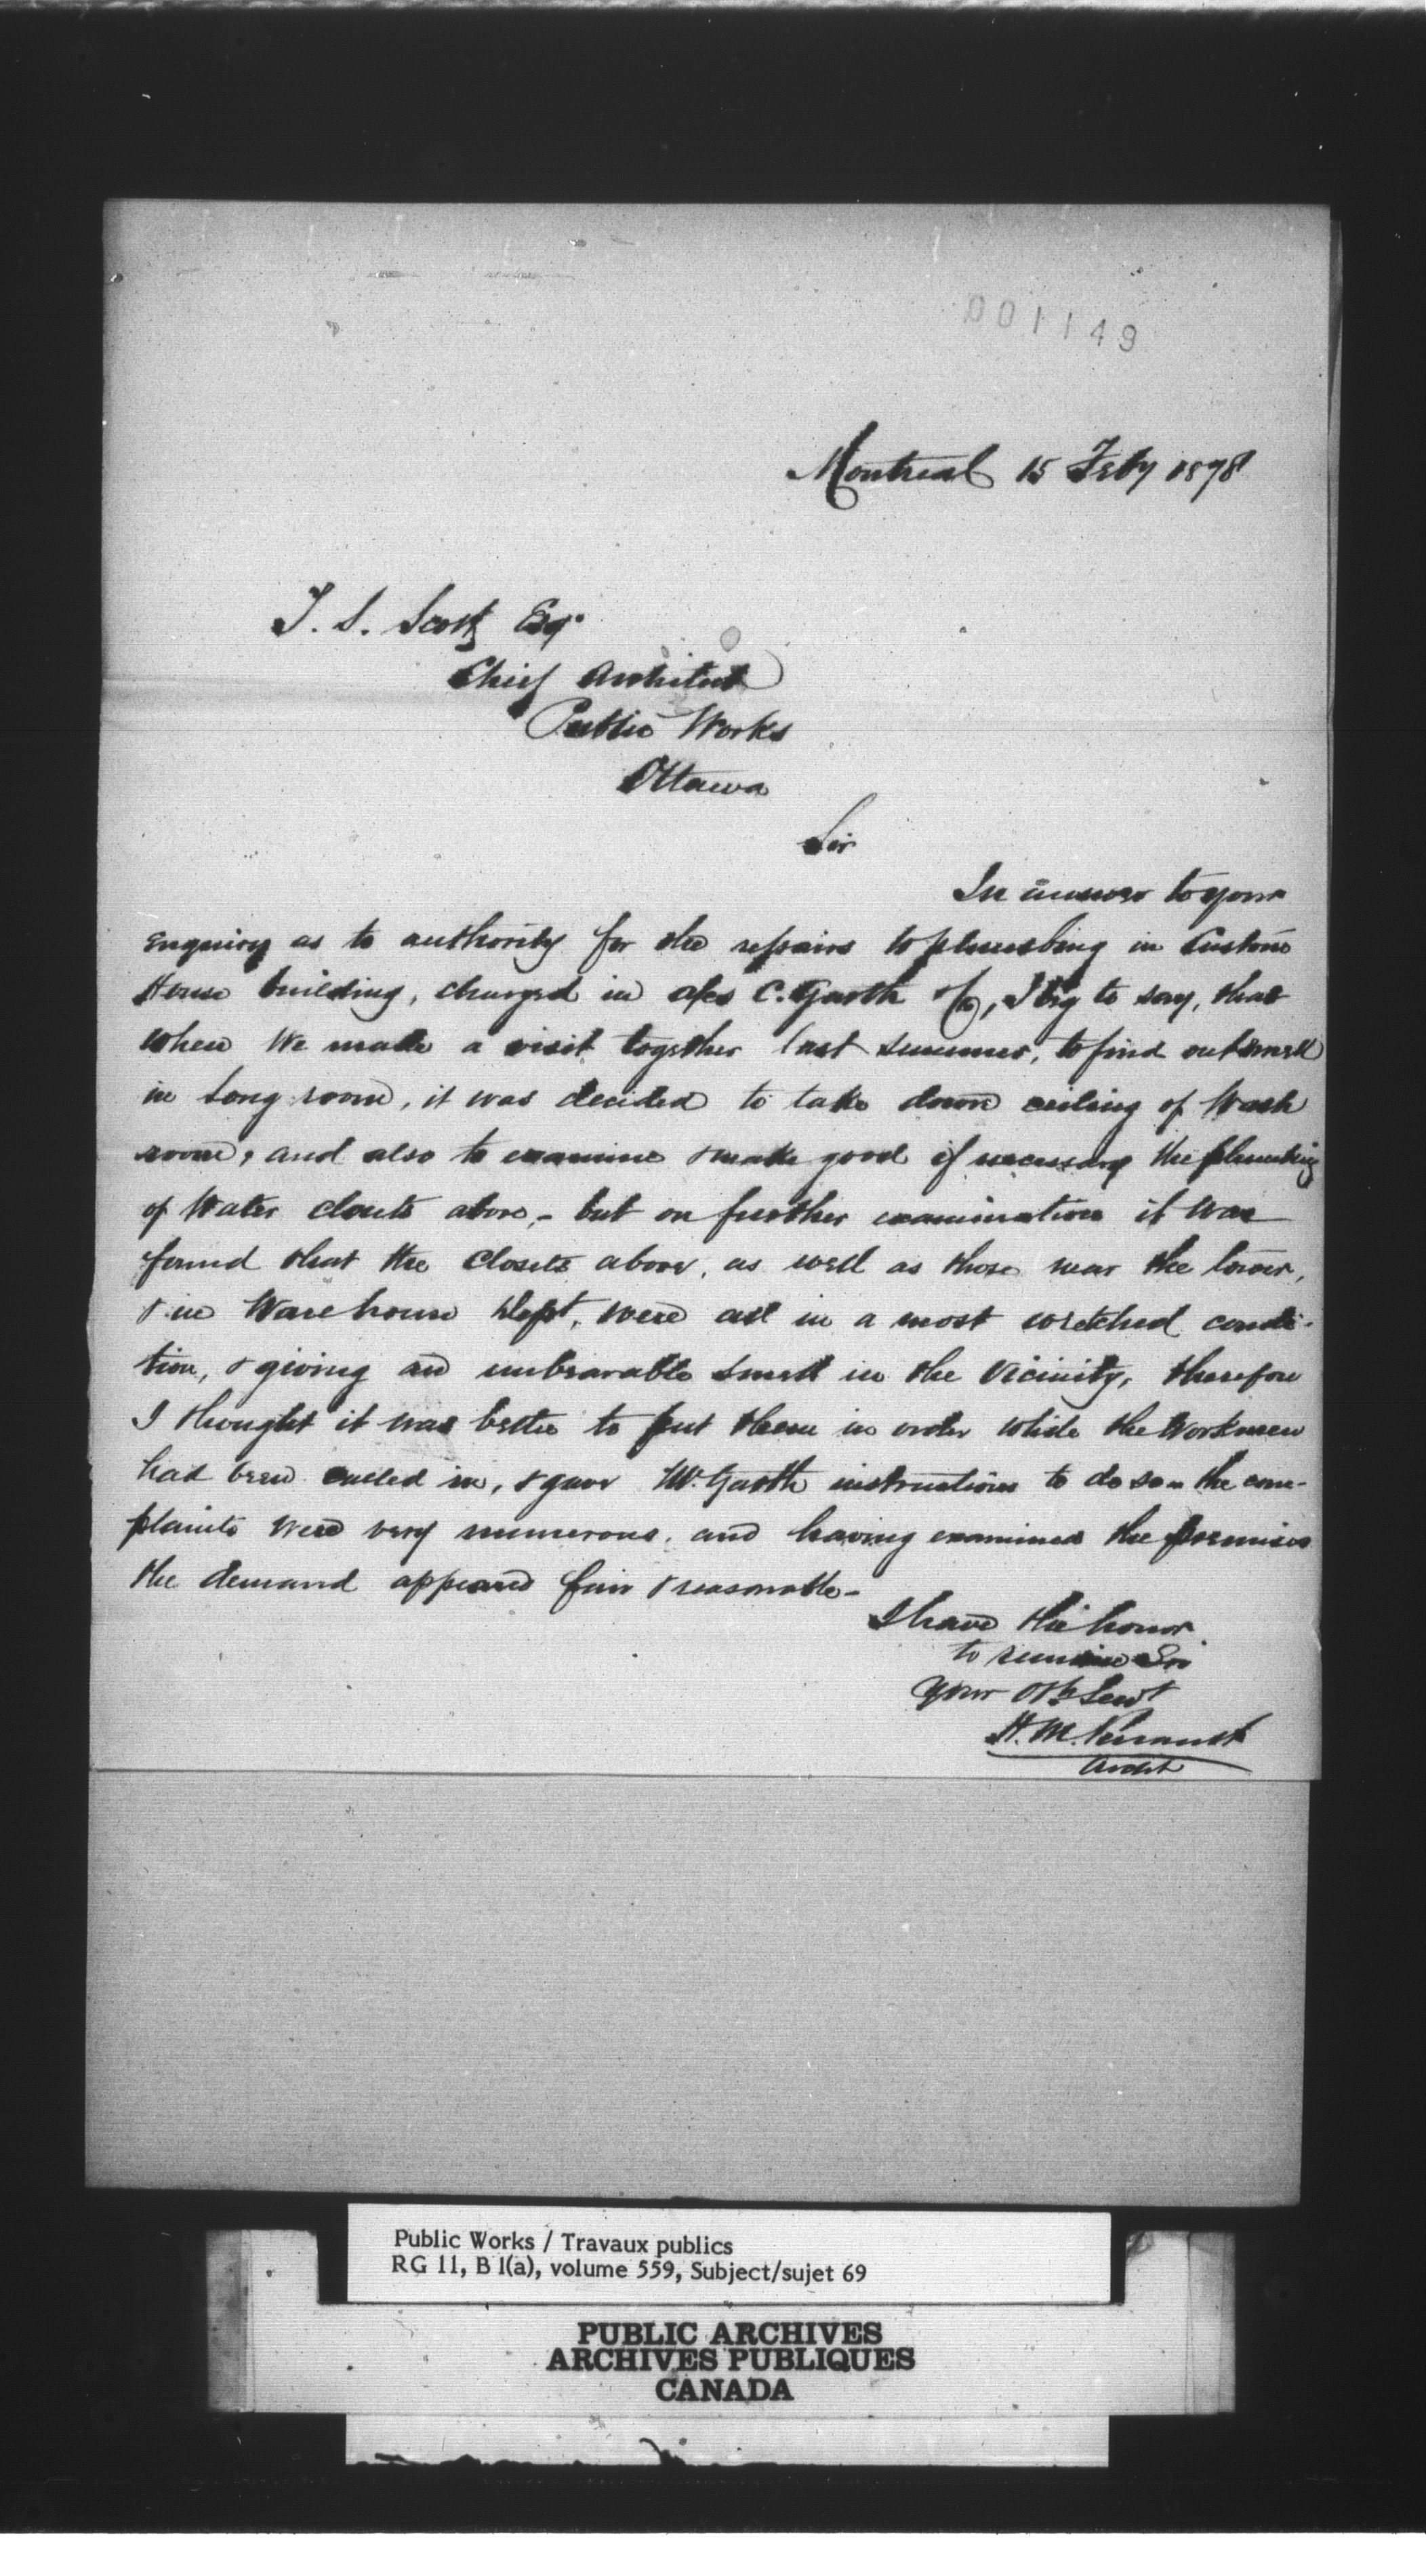 001149
Montreal 15 Feby 1878
T. S. Scott Esqr
Chief Architect
Public Works
Ottawa
Sir
In answer to your
Enquiry as to authority for the repairs to plumbing in Custom
House building, charged in a/cs C. Garth &Co, I beg to say, that
when We made a visit together last summer, to find out smell
in Long room, it was decided to take down ceiling of Wash
room, and also to examine & make good if necessary the plumbing
of Water closets above, - but on further examination it was
found that the Closets above, as well as those near the tower,
& in Warehouse Dept, were all in a most wretched condi-
tion, & giving an unbearable smell in the Vicinity, therefore
I thought it was better to put them in order while the Workmen
had been called in, & gave Mr. Garth instructions to do so - the com-
plaints were very numerous, and having examined the premises
the demand appeared fair & reasonable -
I have the honor
to remain Sir
Your Ob Servt
H. M. Perrault
Archt
Public Works / Travaux publics
RG 11, B 1(a), volume 559, Subject/sujet 69
PUBLIC ARCHIVES
ARCHIVES PUBLIQUES
CANADA